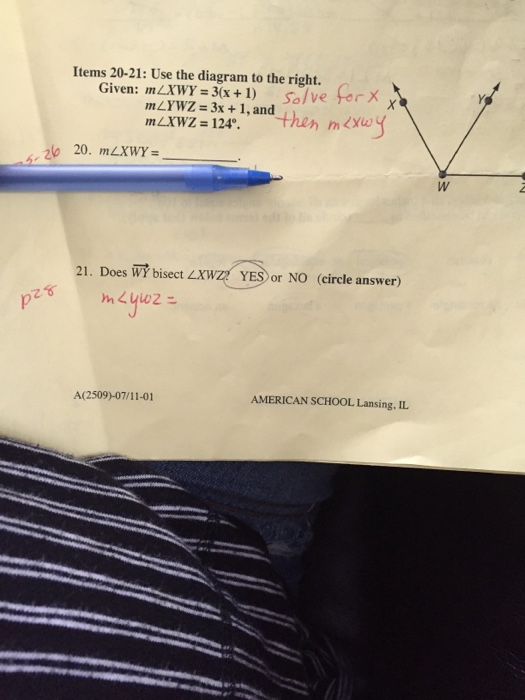 Items 20-21: Use the diagram to the right.
Given: m∠XWY = 3(x + 1)
m∠YWZ = 3x + 1, and
m∠XWZ = 124°.
solve for x
then m∠xwy
X
Y
W
Z
20. m∠XWY = ________.
21. Does WY bisect ∠XWZ? YES or NO (circle answer)
p28
m∠ywz =
A(2509)-07/11-01
AMERICAN SCHOOL Lansing, IL